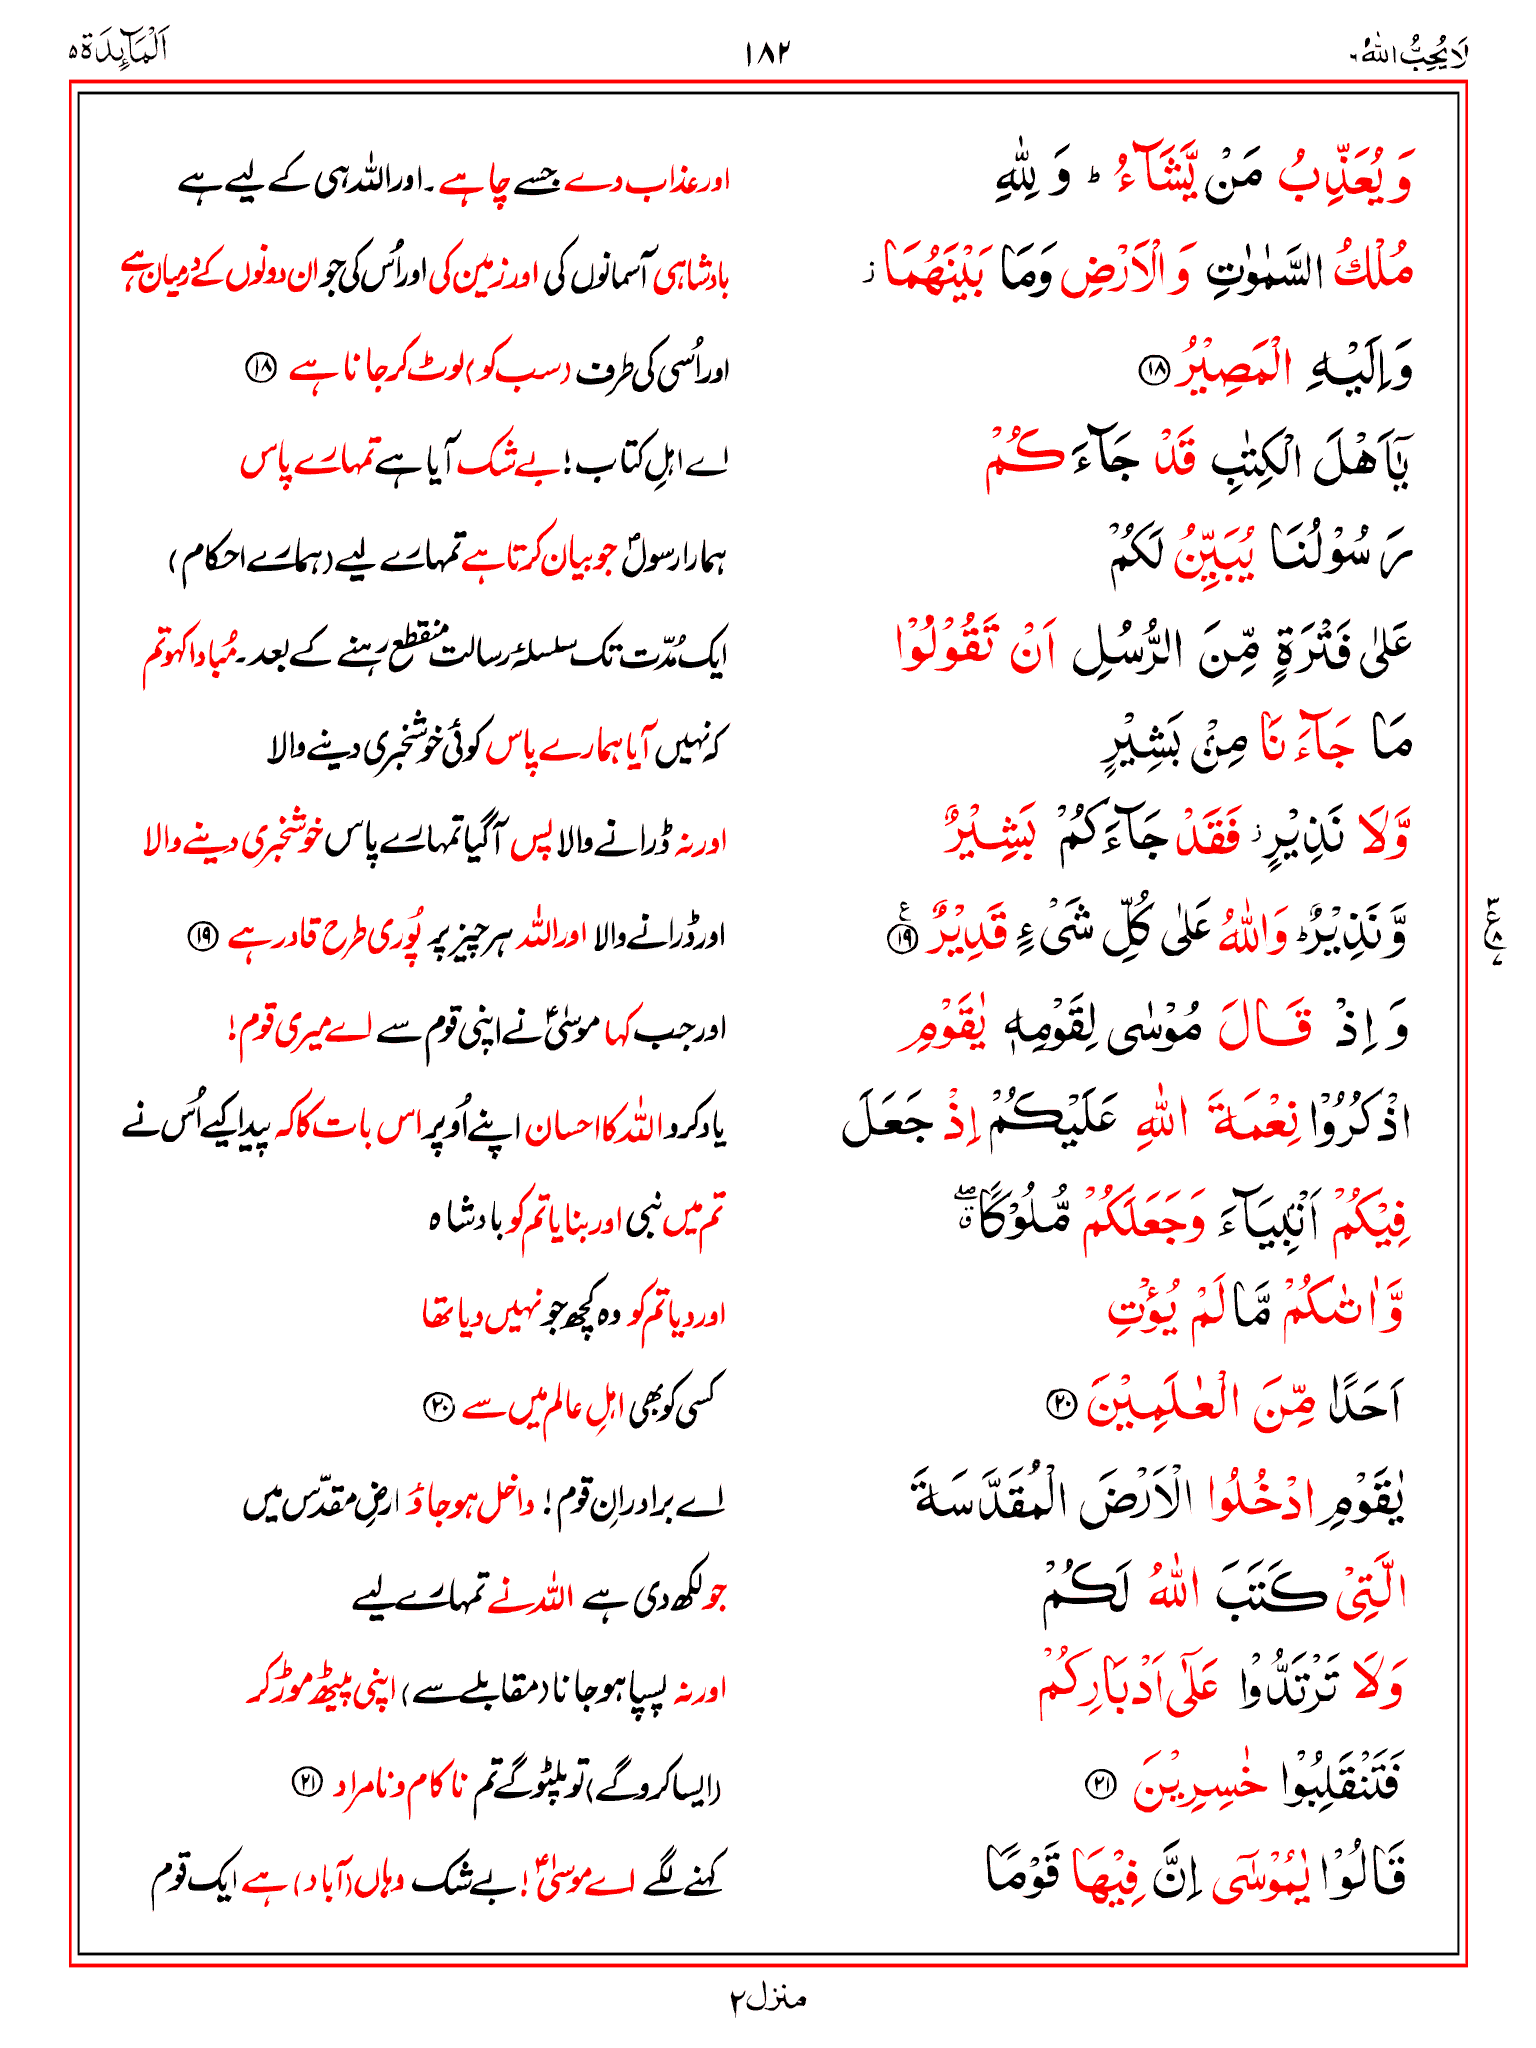 لَا یُحِبُّ اللّٰهُ ۶
۱۸۲
اَلْمَآئِدَة ۵
وَ یُعَذِّبُ مَنْ یَّشَآءُ ؕ وَ لِلّٰهِ
اور عذاب دے جسے چاہے ۔ اور اللہ ہی کے لیے ہے
مُلْكُ السَّمٰوٰتِ وَ الْاَرْضِ وَمَا بَیْنَهُمَا ز
بادشاہی آسمانوں کی اور زمین کی اور اُس کی جو ان دونوں کے درمیان ہے
وَ اِلَیْهِ الْمَصِیْرُ ۝۱۸
اور اُسی کی طرف (سب کو) لوٹ کر جانا ہے ۝۱۸
یٰۤاَهْلَ الْكِتٰبِ قَدْ جَآءَكُمْ
اے اہلِ کتاب! بے شک آیا ہے تمہارے پاس
رَسُوْلُنَا یُبَیِّنُ لَكُمْ
ہمارا رسولؐ جو بیان کرتا ہے تمہارے لیے (ہمارے احکام)
عَلٰی فَتْرَةٍ مِّنَ الرُّسُلِ اَنْ تَقُوْلُوْا
ایک مُدّت تک سلسلۂ رسالت منقطع رہنے کے بعد ۔ مُبادا کہو تم
مَا جَآءَنَا مِنْۢ بَشِیْرٍ
کہ نہیں آیا ہمارے پاس کوئی خوشخبری دینے والا
وَّلَا نَذِیْرٍ ز فَقَدْ جَآءَكُمْ بَشِیْرٌ
اور نہ ڈرانے والا پس آگیا تمہارے پاس خوشخبری دینے والا
وَّ نَذِیْرٌ ؕ وَاللّٰهُ عَلٰی كُلِّ شَیْءٍ قَدِیْرٌ ۝۱۹ ع
اور ڈرانے والا اور اللہ ہر چیز پر پُوری طرح قادر ہے ۝۱۹
۳
ع
۸
۷
وَ اِذْ قَالَ مُوْسٰی لِقَوْمِهٖ یٰقَوْمِ
اور جب کہا موسٰیؑ نے اپنی قوم سے اے میری قوم!
اذْكُرُوْا نِعْمَةَ اللّٰهِ عَلَیْكُمْ اِذْ جَعَلَ
یاد کرو اللہ کا احسان اپنے اُوپر اس بات کا کہ پیدا کیے اُس نے
فِیْكُمْ اَنْۢبِیَآءَ وَجَعَلَكُمْ مُّلُوْكًا ۖق
تم میں نبی اور بنایا تم کو بادشاہ
وَّ اٰتٰىكُمْ مَّا لَمْ یُؤْتِ
اور دیا تم کو وہ کچھ جو نہیں دیا تھا
اَحَدًا مِّنَ الْعٰلَمِیْنَ ۝۲۰
کسی کو بھی اہلِ عالم میں سے ۝۲۰
یٰقَوْمِ ادْخُلُوا الْاَرْضَ الْمُقَدَّسَةَ
اے برادرانِ قوم! داخل ہو جاؤ ارضِ مقدّس میں
الَّتِیْ كَتَبَ اللّٰهُ لَكُمْ
جو لکھ دی ہے اللہ نے تمہارے لیے
وَلَا تَرْتَدُّوْا عَلٰۤی اَدْبَارِكُمْ
اور نہ پسپا ہو جانا (مقابلے سے) اپنی پیٹھ موڑ کر
فَتَنْقَلِبُوْا خٰسِرِیْنَ ۝۲۱
(ایسا کرو گے) تو پلٹو گے تم ناکام و نامراد ۝۲۱
قَالُوْا یٰمُوْسٰۤی اِنَّ فِیْهَا قَوْمًا
کہنے لگے اے موسٰیؑ! بے شک وہاں (آباد) ہے ایک قوم
منزل ۲